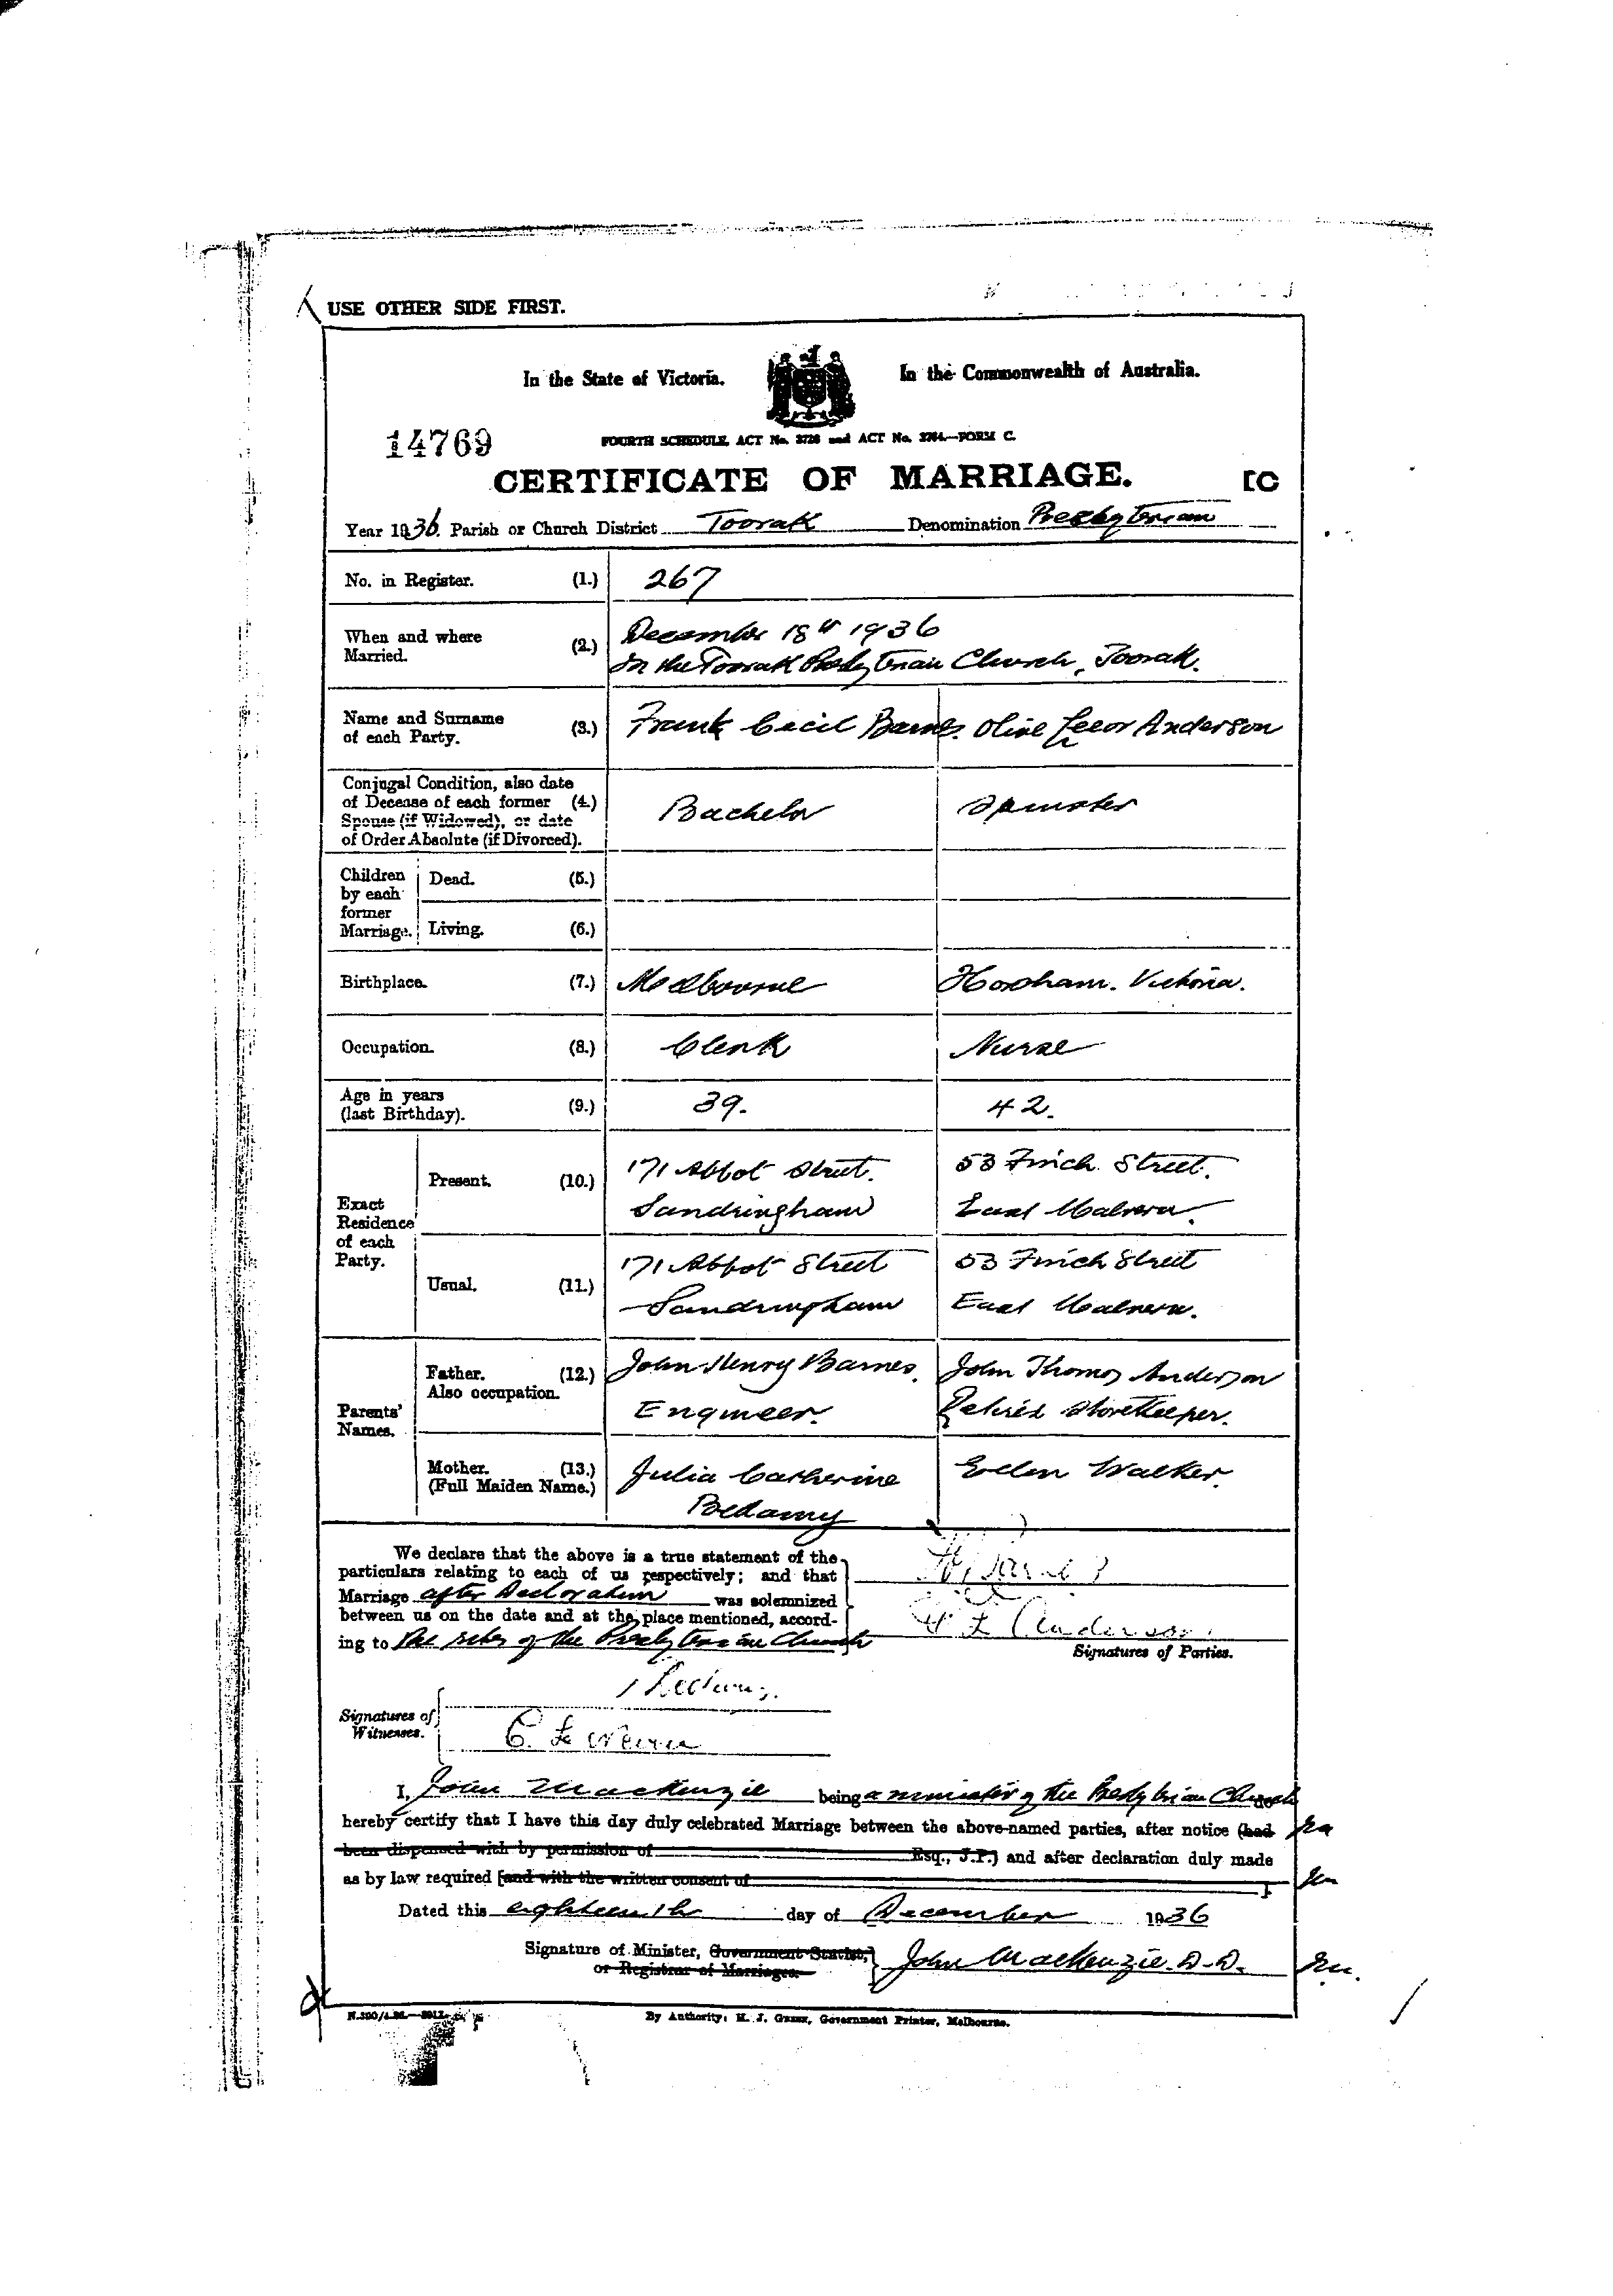 USE OTHER SIDE FIRST.
In the State of Victoria. In the Commonwealth of Australia.
14769
FOURTH SCHEDULE, ACT No. 3726 and ACT No. 3764.—FORM C.
CERTIFICATE OF MARRIAGE. [C
Year 1936. Parish or Church District Toorak Denomination Presbyterian
No. in Register. (1.) 267
When and where Married. (2.) December 18th 1936
In the Toorak Presbyterian Church, Toorak.
Name and Surname of each Party. (3.) Frank Cecil Barnes. Olive Anderson
Conjugal Condition, also date
of Decease of each former (4.) Bachelor Spinster
Spouse (if Widowed), or date
of Order Absolute (if Divorced).
Children by each former Marriage.
Dead. (5.)
Living. (6.)
Birthplace. (7.) Melbourne Horsham. Victoria.
Occupation. (8.) Clerk Nurse
Age in years (last Birthday). (9.) 39. 42.
Exact Residence of each Party.
Present. (10.) 171 Abbot Street. 53 Finch Street.
Sandringham East Malvern.
Usual. (11.) 171 Abbot Street 53 Finch Street
Sandringham East Malvern.
Parents' Names.
Father. (12.) John Henry Barnes. John Thomas Anderson
Also occupation. Engineer. Retired Storekeeper.
Mother. (13.) Julia Catherine Ellen Walker.
(Full Maiden Name.) Bellamy
We declare that the above is a true statement of the
particulars relating to each of us respectively; and that
Marriage after Declaration was solemnized
between us on the date and at the place mentioned, accord-
ing to the rites of the Presbyterian Church
Anderson
Signatures of Parties.
Signatures of Witnesses.
I, John Mackenzie being a minister of the Presbyterian Church
hereby certify that I have this day duly celebrated Marriage between the above-named parties, after notice (had
been dispensed with by permission of Esq., J.P.) and after declaration duly made
as by law required [and with the written consent of ].
Dated this eighteenth day of December 1936
Signature of Minister, Government Statist, John Mackenzie. D.D.
or Registrar of Marriages.
By Authority: H. J. Green, Government Printer, Melbourne.